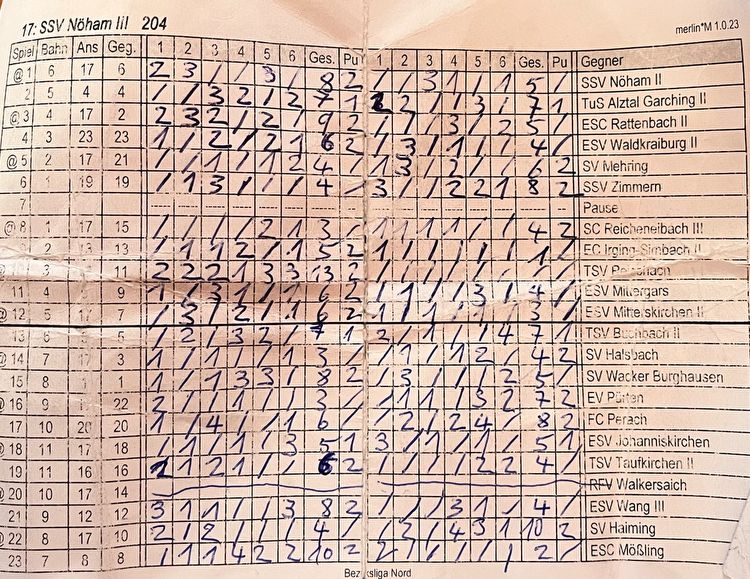 17: SSV Nöham III 204
merlin*M 1.0.23
Spiel Bahn Ans Geg. 1 2 3 4 5 6 Ges. Pu 1 2 3 4 5 6 Ges. Pu Gegner
@ 1 6 17 6 2 3 / / 3 / 8 2 / / 3 1 / 1 5 / SSV Nöham II
2 5 4 4 / / 3 2 / 2 7 1 2 2 / / 3 / 7 1 TuS Alztal Garching II
@ 3 4 17 2 2 3 2 / 2 / 9 2 / / / 3 / 2 5 / ESC Rattenbach II
4 3 23 23 1 / 2 / 2 1 6 2 / 3 / 1 / / 4 / ESV Waldkraiburg II
@ 5 2 17 21 / / 1 / 1 2 4 / 1 3 / 2 / / 6 2 SV Mehring
6 1 19 19 / 1 3 / / / 4 / 3 / / 2 2 1 8 2 SSV Zimmern
7 Pause
@ 8 1 17 15 / / / / 2 1 3 / 1 1 1 1 / / 4 2 SC Reicheneibach III
2 13 13 / 1 1 2 / 1 5 2 1 / / / / / 1 / EC Irging-Simbach II
3 11 2 2 2 1 3 3 13 2 / / / / / / / / TSV
11 4 4 9 1 / 3 1 / 1 6 2 / 1 / / 3 / 4 / ESV Mittergars
@ 12 5 7 / 3 / 2 / 1 6 2 1 1 / / / 1 3 / ESV Mitterskirchen II
13 6 5 / 2 / 3 2 / 7 1 2 / 1 / / 4 7 1 TSV Buchbach II
@ 14 7 3 1 / 1 / / 1 3 / / 1 / 1 2 / 4 2 SV Halsbach
15 8 1 1 1 / 1 3 3 / 8 2 / 3 / / / 2 5 / SV Wacker Burghausen
@ 16 9 22 2 / / 1 / / 3 / / 1 1 / 3 2 7 2 EV Pürten
17 10 20 20 1 / 4 / / 1 6 / / / 2 / 2 4 / 8 2 FC Perach
@ 18 11 17 18 / 1 / 1 / 3 5 1 3 / 1 / 1 / 5 1 ESV Johanniskirchen
19 11 16 16 2 1 2 1 / / 6 2 / / / / 2 2 4 / TSV Taufkirchen II
@ 20 10 17 14 RFV Walkersaich
21 9 12 12 3 1 1 / / 3 8 2 / / / 3 1 / 4 / ESV Wang III
@ 22 8 17 10 2 / 2 / / / 4 / / 3 / 4 3 1 10 2 SV Haiming
23 7 8 8 / 1 1 4 2 2 10 2 2 / / / / / 2 / ESC Mößling
Bezirksliga Nord